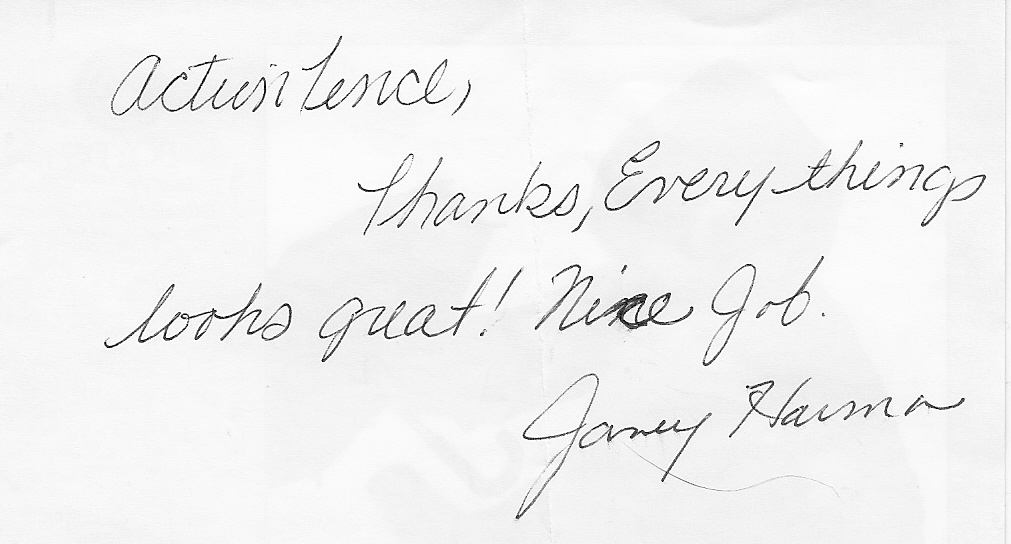 Action Fence,
Thanks, Every things
looks great! Nice Job.
Janey Harmon